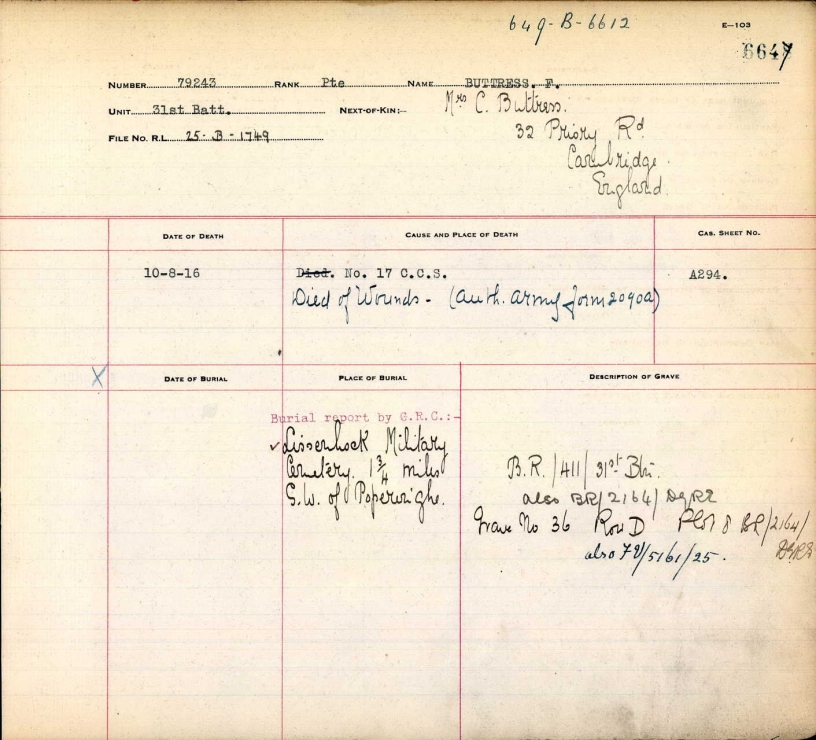 649-B-6612
E-103
6647
NUMBER 79243 RANK Pte NAME BUTTRESS. F.
UNIT 31st Batt. NEXT-OF-KIN:- Mrs C. Buttress.
FILE NO. R.L. 25-B-1749 32 Priory Rd
Cambridge.
England.
DATE OF DEATH CAUSE AND PLACE OF DEATH CAS. SHEET NO.
10-8-16 Died. No. 17 C.C.S. A294.
Died of Wounds - (Auth. Army form 2090a)
X DATE OF BURIAL PLACE OF BURIAL DESCRIPTION OF GRAVE
Burial report by G.R.C.:-
✓ Lissenhock Military
Cemetery. 1 3/4 miles B.R./411/31st Btn.
S.W. of Poperinghe. also BR/2164/DGRE
Grave No 36 Row D Plot 8 BR/2164/
DGRE
also /5161/25.